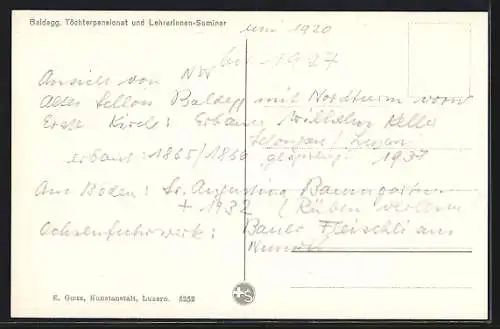 Baldegg, Töchterpensionat und Lehrerinnen-Seminar
um 1920
bis 1937
Ansicht von NW
Altes Schloss Baldegg mit Nordturm vorn
Erste Kirche: Erbauer Wilhelm Keller
erbaut: 1865/1866 1937
Am Boden: Sr. Augustina Baumgartner
+ 1932 (Rüben
Ochsenfuhrwerk: Bauer Fleischli aus
E. Goetz, Kunstanstalt, Luzern. 4252